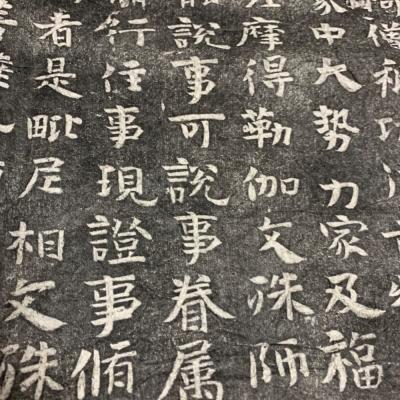 僧祇
家中大勢力家及福
摩得勒伽文殊師
說事可說事眷属
行住事現證事脩
者是毗尼相文殊